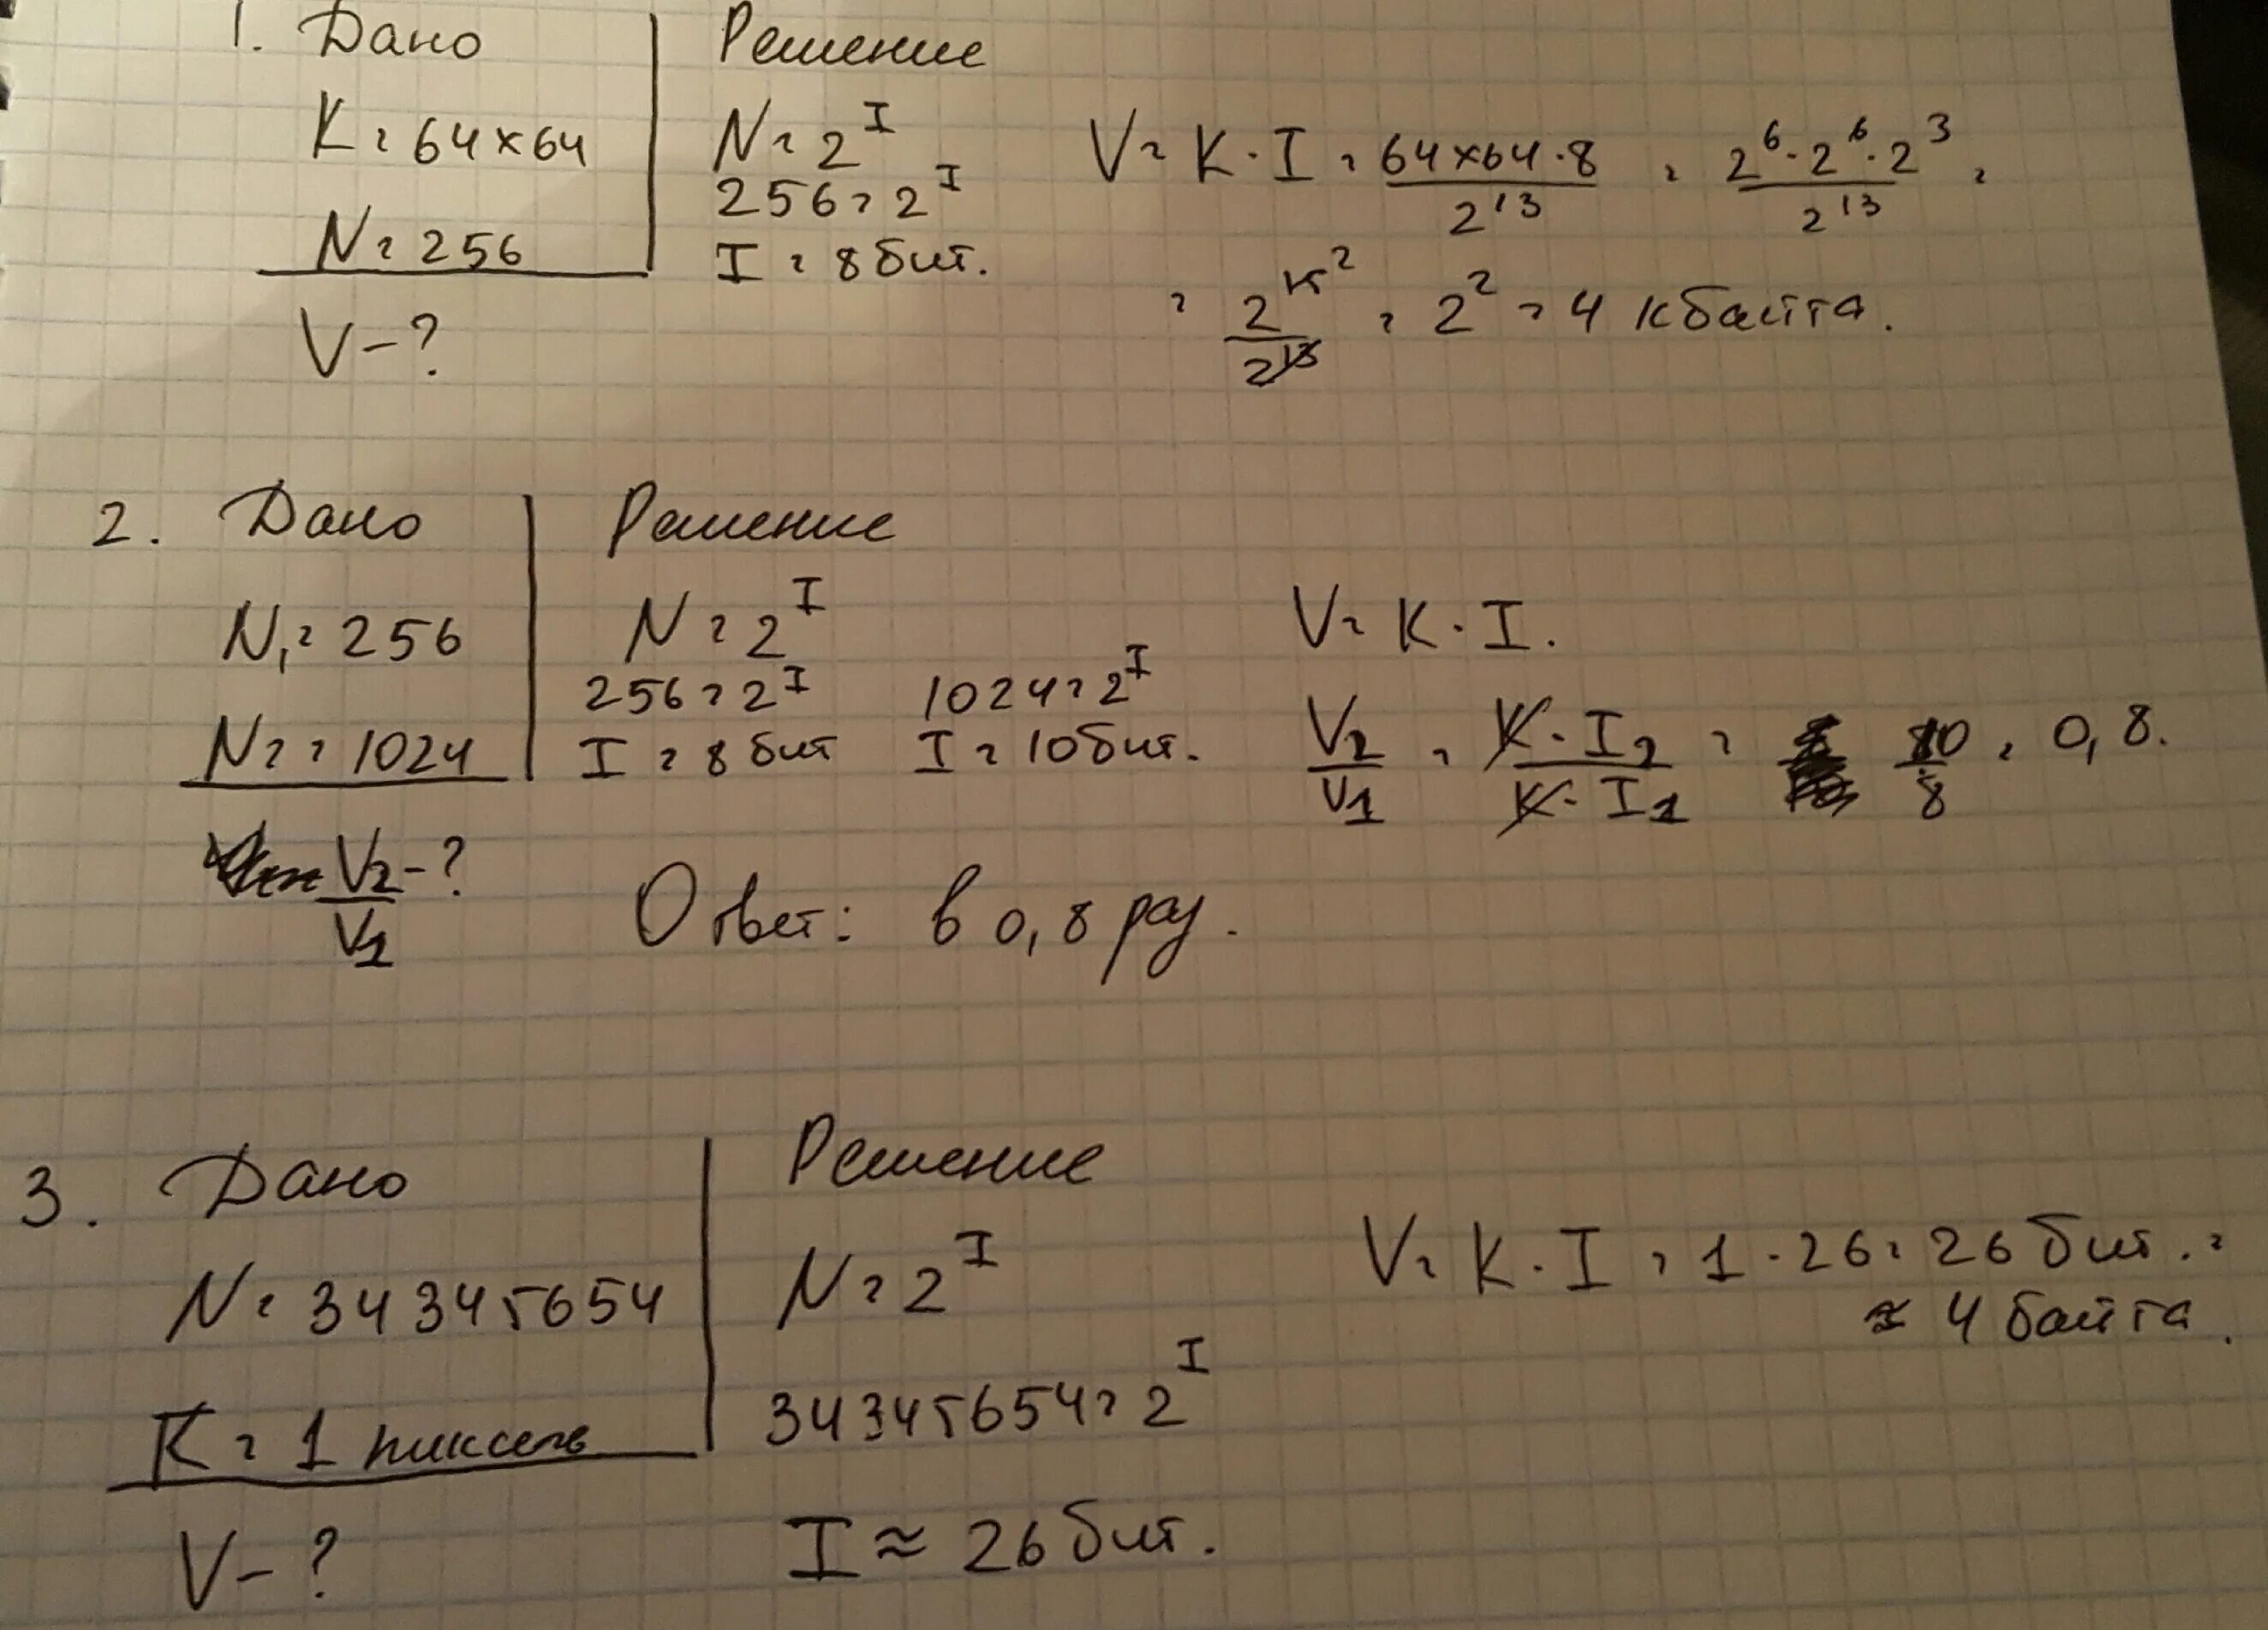 1. Дано
K = 64×64
N = 256
V – ?
Решение
N = 2^I
256 = 2^I
I = 8 бит.
V = K · I = 64×64·8 / 2^13 = 2^6 · 2^6 · 2^3 / 2^13 =
= 2^15 / 2^13 = 2^2 = 4 кбайта.
2. Дано
N1 = 256
N2 = 1024
V2 / V1 – ?
Решение
N = 2^I
256 = 2^I 1024 = 2^I
I = 8 бит I = 10 бит.
V = K · I.
V2 / V1 = K · I2 / K · I1 = 10 / 8 = 0,8.
Ответ: в 0,8 раз.
3. Дано
N = 34345654
K = 1 пиксель
V – ?
Решение
N = 2^I
34345654 = 2^I
I ≈ 26 бит.
V = K · I = 1 · 26 = 26 бит. =
≈ 4 байта.